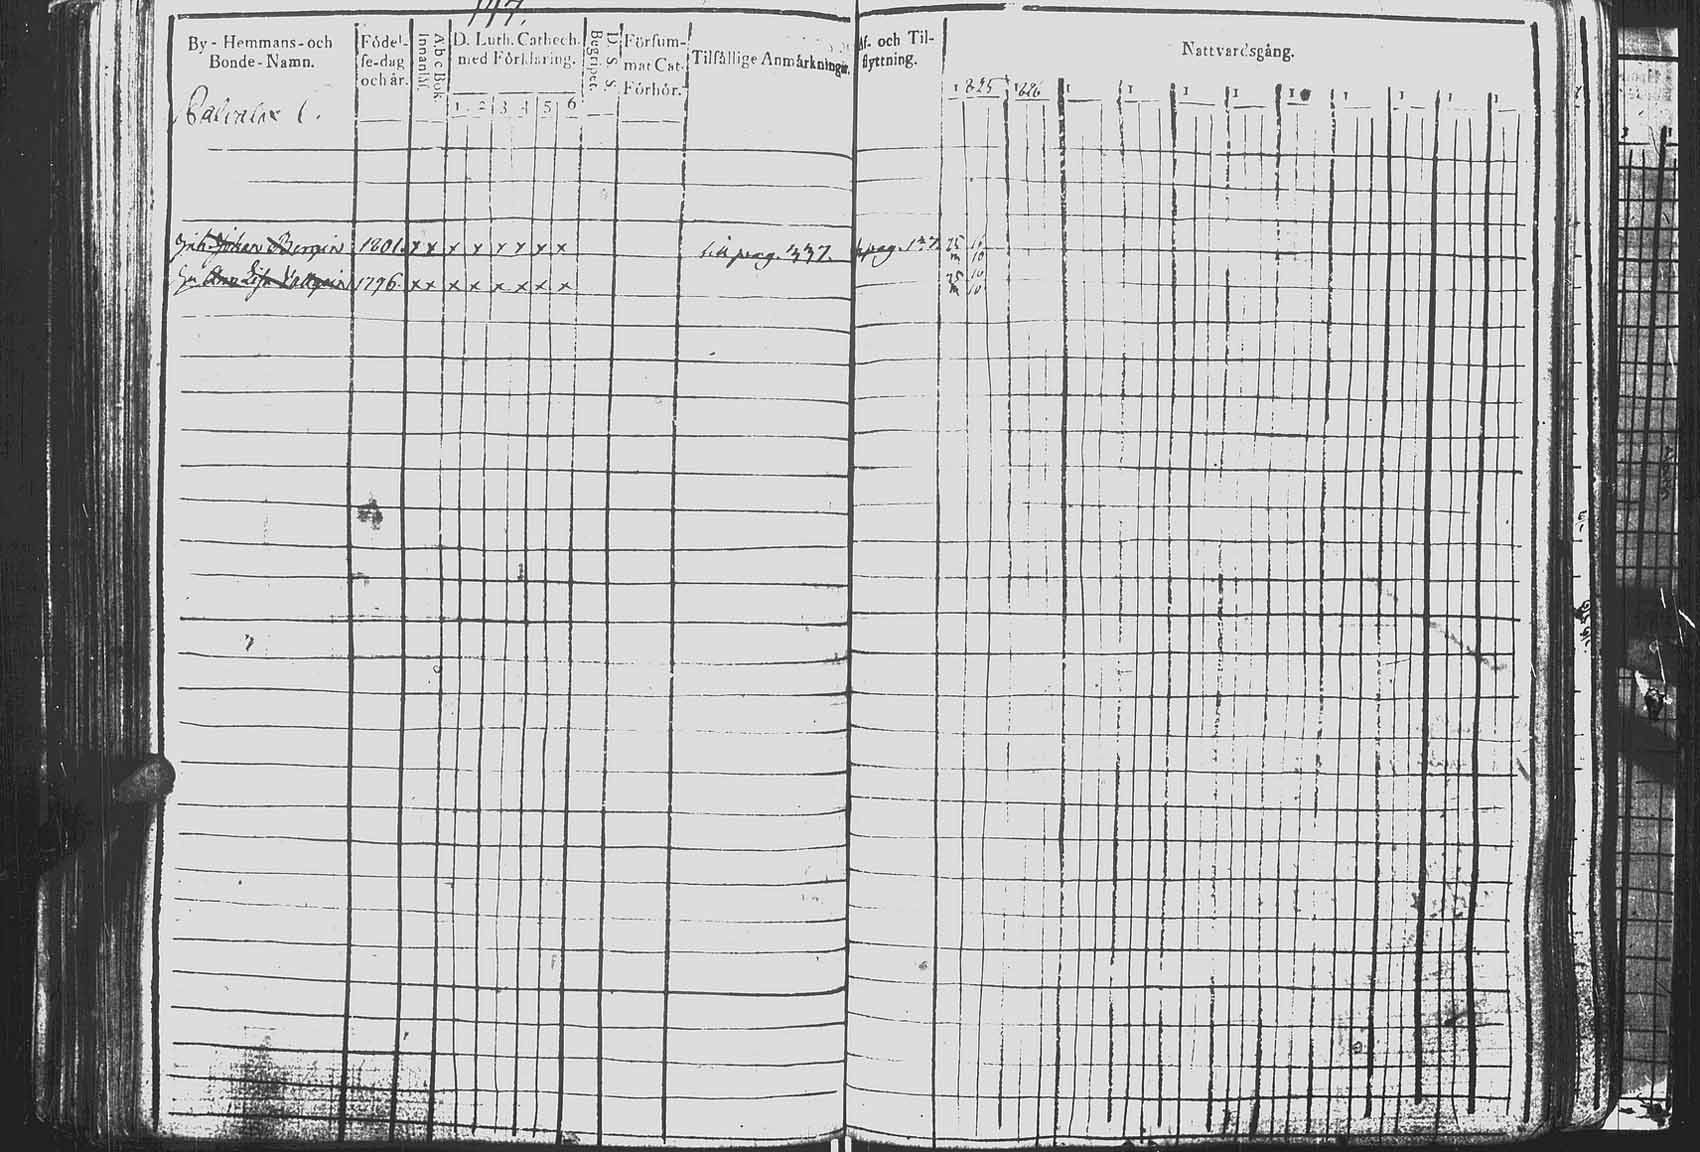 117.
By-Hemmans-och
Bonde-Namn.
Födel-
se-dag
och år.
A.b.c Bok
Innantil.
D. Luth. Cathech.
med Förklaring.
1 2 3 4 5 6
D. S. S.
Begripet.
Försum-
mat Cat.
Förhör.
Tilfällige Anmärkningar.
Af- och Til-
flyttning.
Nattvardsgång.
1825 1826 1 1 1 1 1 1 1 1 1
Johan 1801. x x x x x x x x till pag. 337. pag. 25 10
1796. x x x x x x x x 25 10